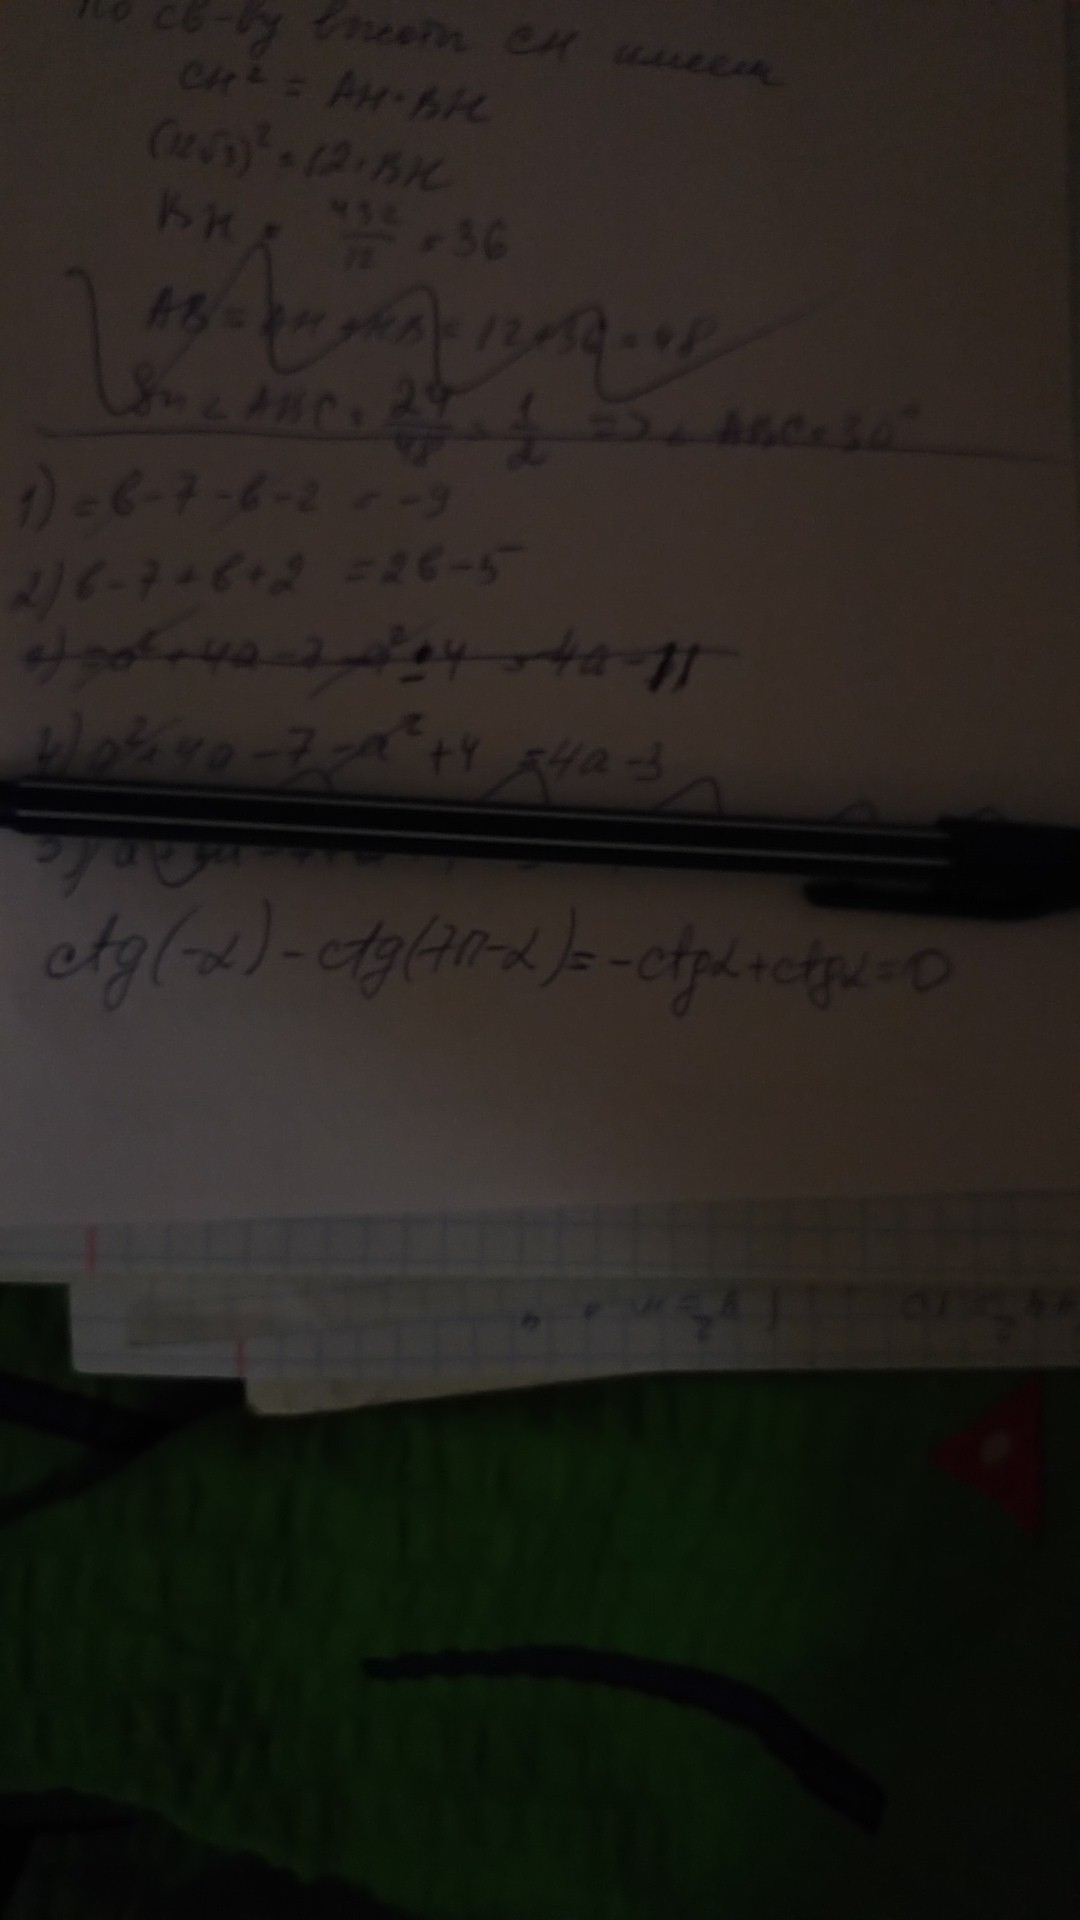 По св-ву высоты CH имеем
CH² = AH·BH
(12√3)² = 12·BH
BH = 432/12 = 36
AB = AH + HB = 12+36 = 48
Sin ∠ ABC = 24/48 = 1/2 => ∠ ABC = 30°
1) = b-7-b-2 = -9
2) b-7+b+2 = 2b-5
a² + 4a - 7 - a² - 4 = 4a - 11
a² + 4a - 7 - a² + 4 = 4a - 3
ctg(-α) - ctg(7π-α) = -ctgα + ctgα = 0